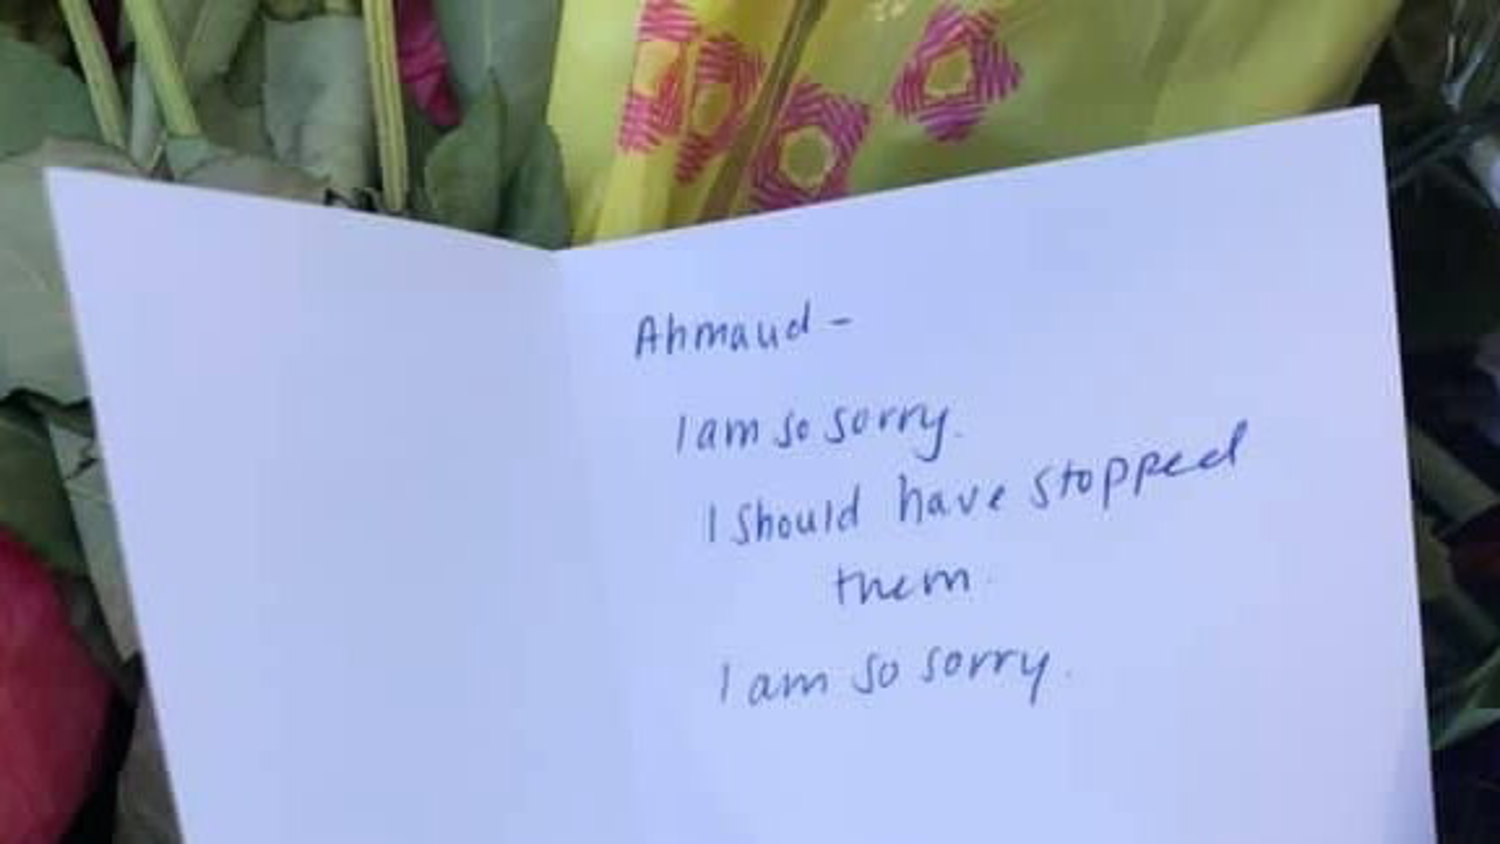 Ahmaud -
I am so sorry.
I should have stopped
them.
I am so sorry.